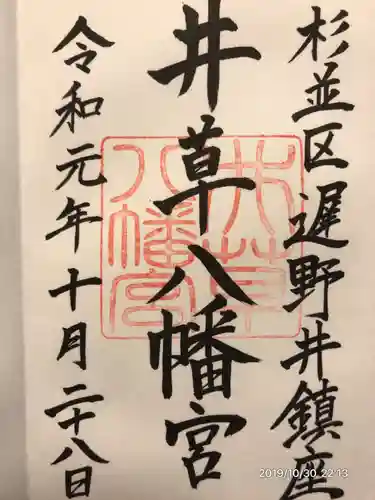 杉並区遅野井鎮座
井草八幡宮
令和元年十月二十八日
井草
八幡宮
2019/10/30 22:13